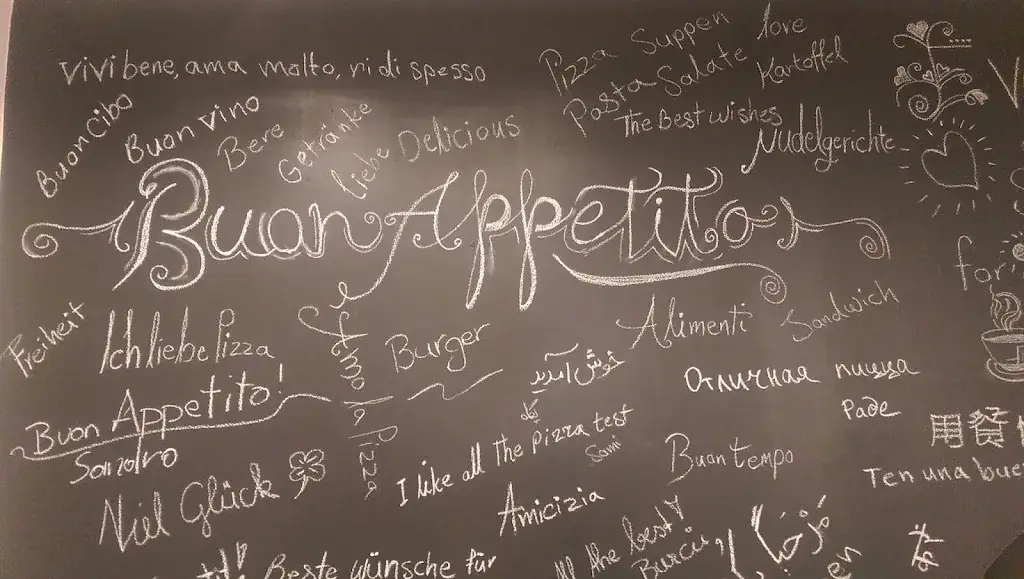 Vivi bene, ama molto, ridi spesso
Buon Cibo
Buon Vino
Bere
Getränke
liebe
Delicious
Pizza
Suppen
love
Pasta
Salate
Kartoffel
The Best wishes
Nudelgerichte
Buon Appetito
for
Freiheit
Ich liebe Pizza
la Pizza
Burger
Alimenti
Sandwich
خوش آمدید
Отличная пицца
Pade
Buon Appetito!
Sandro
I like all the pizza test
Sami
Buon tempo
用餐
Ten una bue
Viel Glück
Amicizia
Beste wünsche für
the best!
Burcu